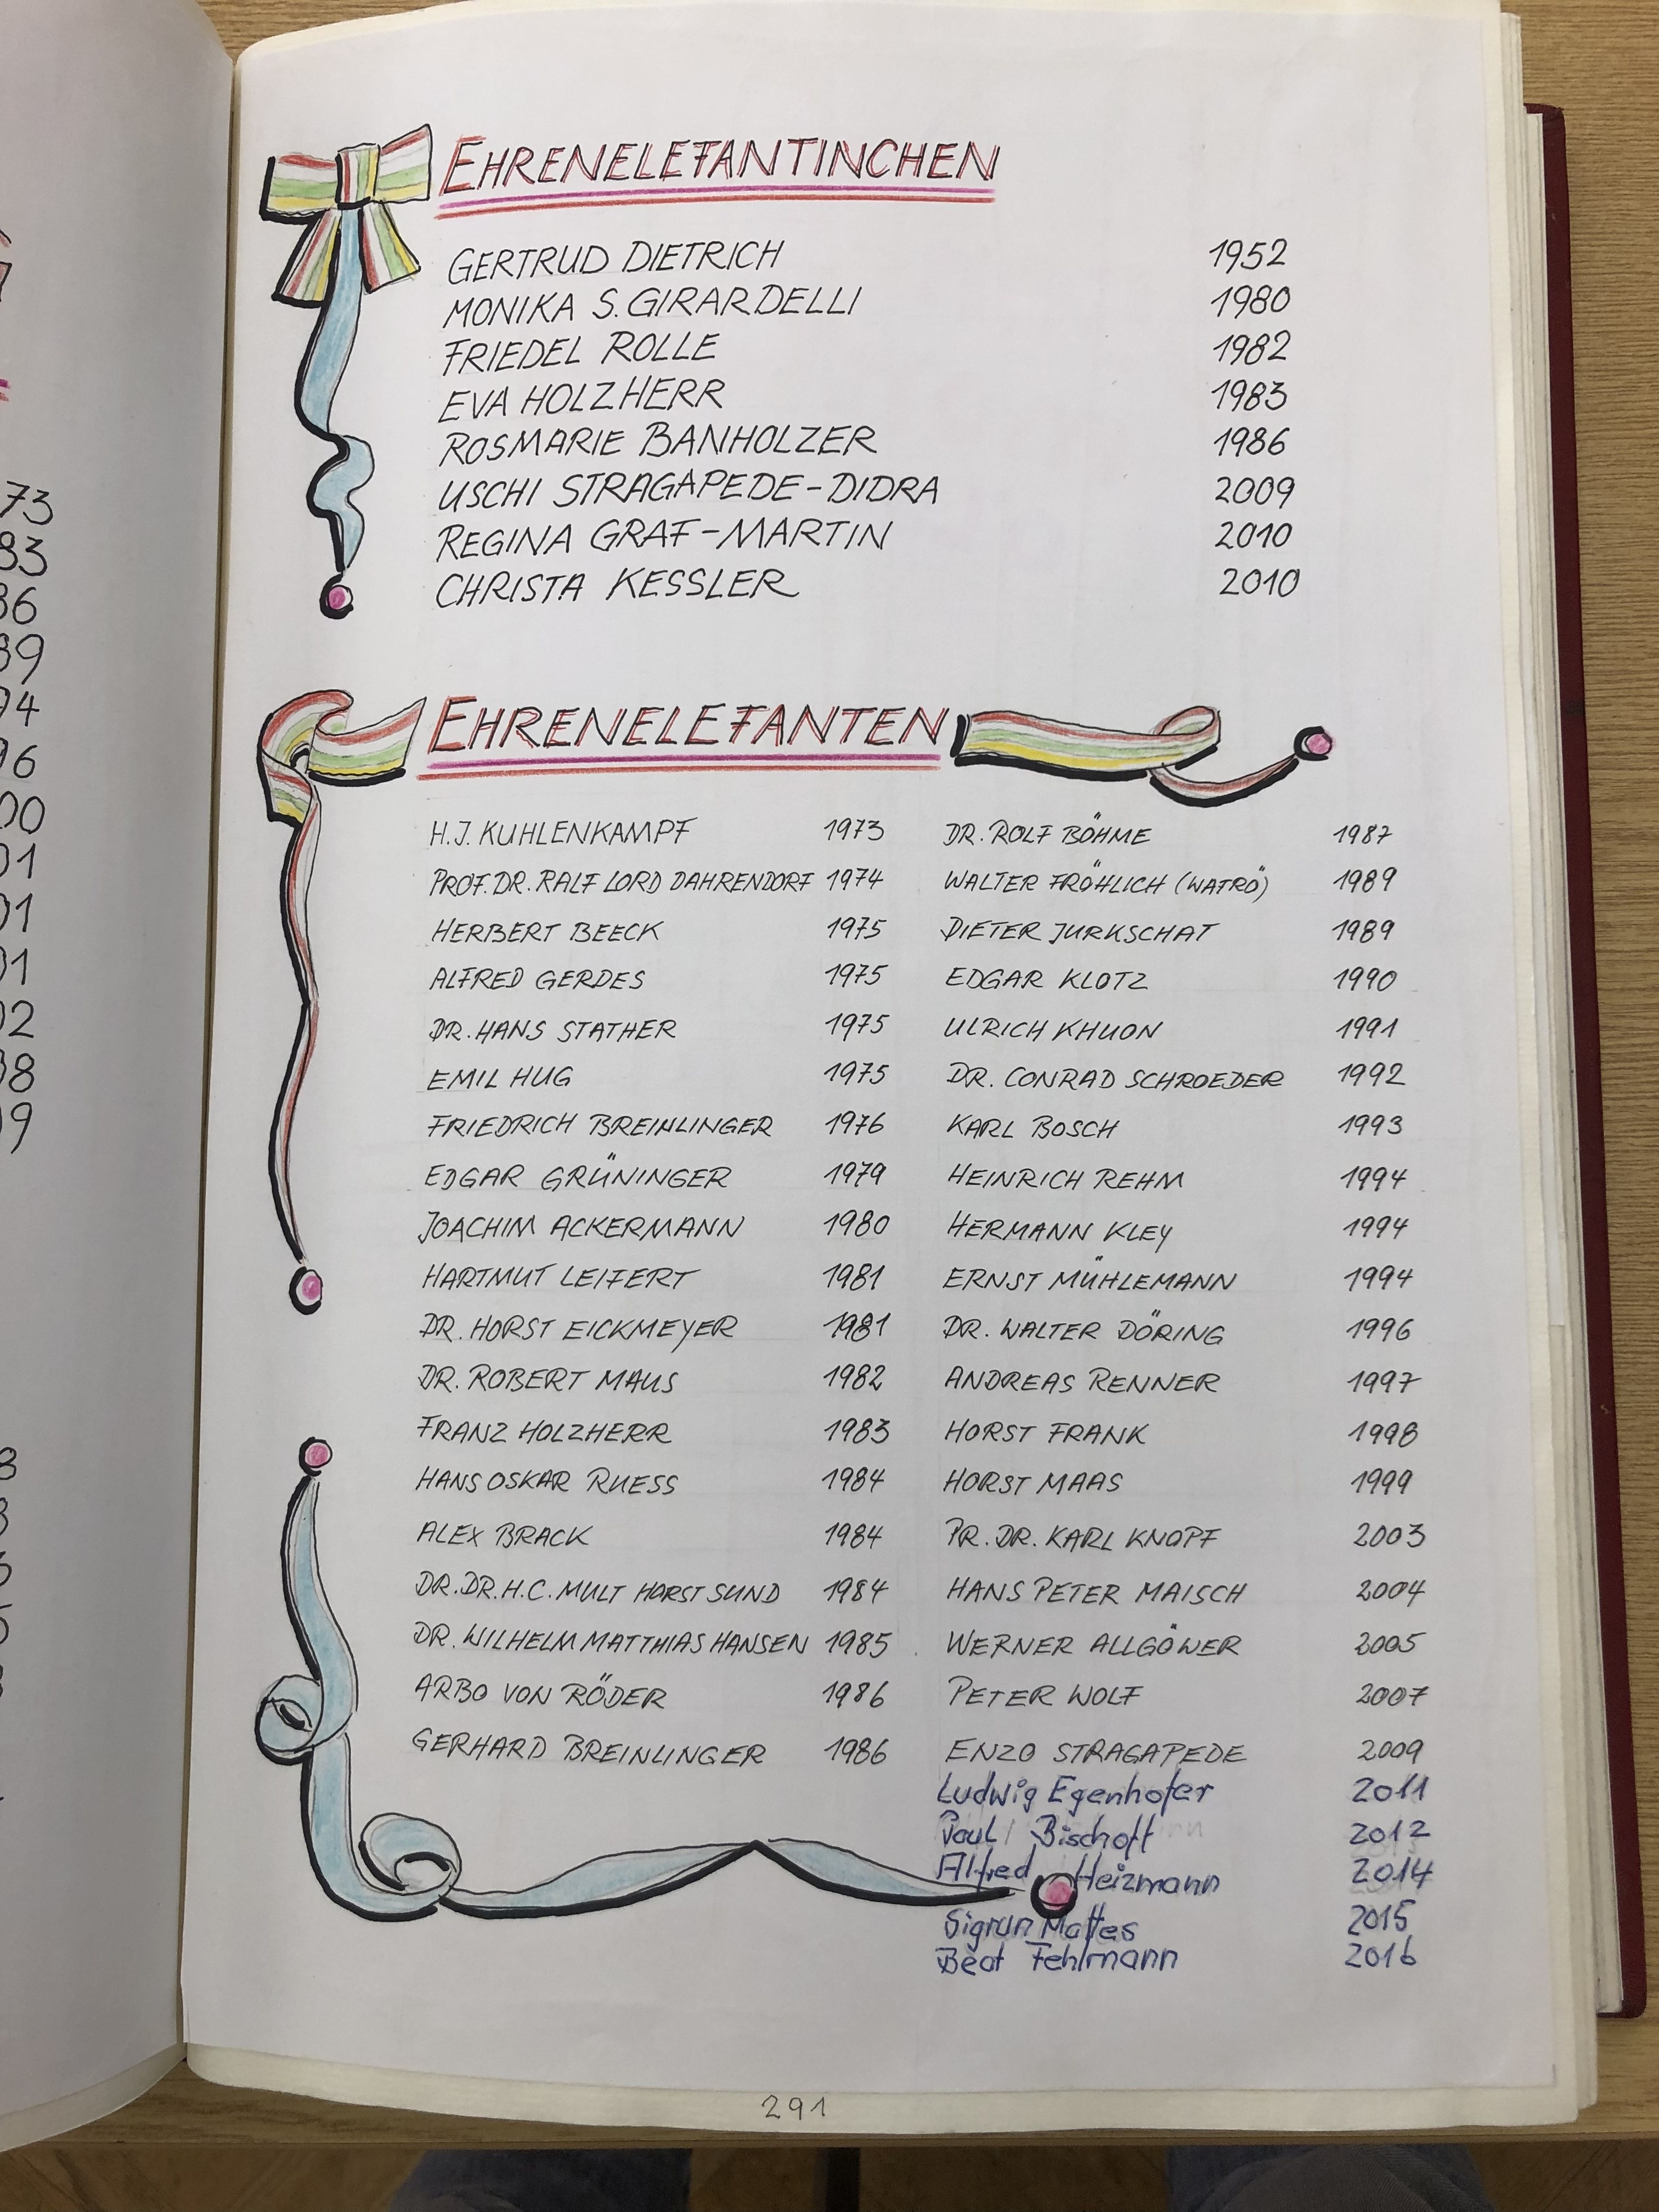 EHRENELEFANTINCHEN
GERTRUD DIETRICH 1952
MONIKA S. GIRARDELLI 1980
FRIEDEL ROLLE 1982
EVA HOLZHERR 1983
ROSMARIE BANHOLZER 1986
USCHI STRAGAPEDE-DIDRA 2009
REGINA GRAF-MARTIN 2010
CHRISTA KESSLER 2010
EHRENELEFANTEN
H.J. KUHLENKAMPF 1973
PROF. DR. RALF LORD DAHRENDORF 1974
HERBERT BEECK 1975
ALFRED GERDES 1975
DR. HANS STATHER 1975
EMIL HUG 1975
FRIEDRICH BREINLINGER 1976
EDGAR GRÜNINGER 1979
JOACHIM ACKERMANN 1980
HARTMUT LEIFERT 1981
DR. HORST EICKMEYER 1981
DR. ROBERT MAUS 1982
FRANZ HOLZHERR 1983
HANS OSKAR RUESS 1984
ALEX BRACK 1984
DR. DR. H.C. MULT HORST SUND 1984
DR. WILHELM MATTHIAS HANSEN 1985
ARBO VON RÖDER 1986
GERHARD BREINLINGER 1986
DR. ROLF BÖHME 1987
WALTER FRÖHLICH (WAFRÖ) 1989
DIETER JURKSCHAT 1989
EDGAR KLOTZ 1990
ULRICH KHUON 1991
DR. CONRAD SCHROEDER 1992
KARL BOSCH 1993
HEINRICH REHM 1994
HERMANN KLEY 1994
ERNST MÜHLEMANN 1994
DR. WALTER DÖRING 1996
ANDREAS RENNER 1997
HORST FRANK 1998
HORST MAAS 1999
PR. DR. KARL KNOPF 2003
HANS PETER MAISCH 2004
WERNER ALLGÖWER 2005
PETER WOLF 2007
ENZO STRAGAPEDE 2009
Ludwig Egenhofer 2011
Paul Bischoff 2012
Alfred Heizmann 2014
Sigrun Mattes 2015
Beat Fehlmann 2016
291